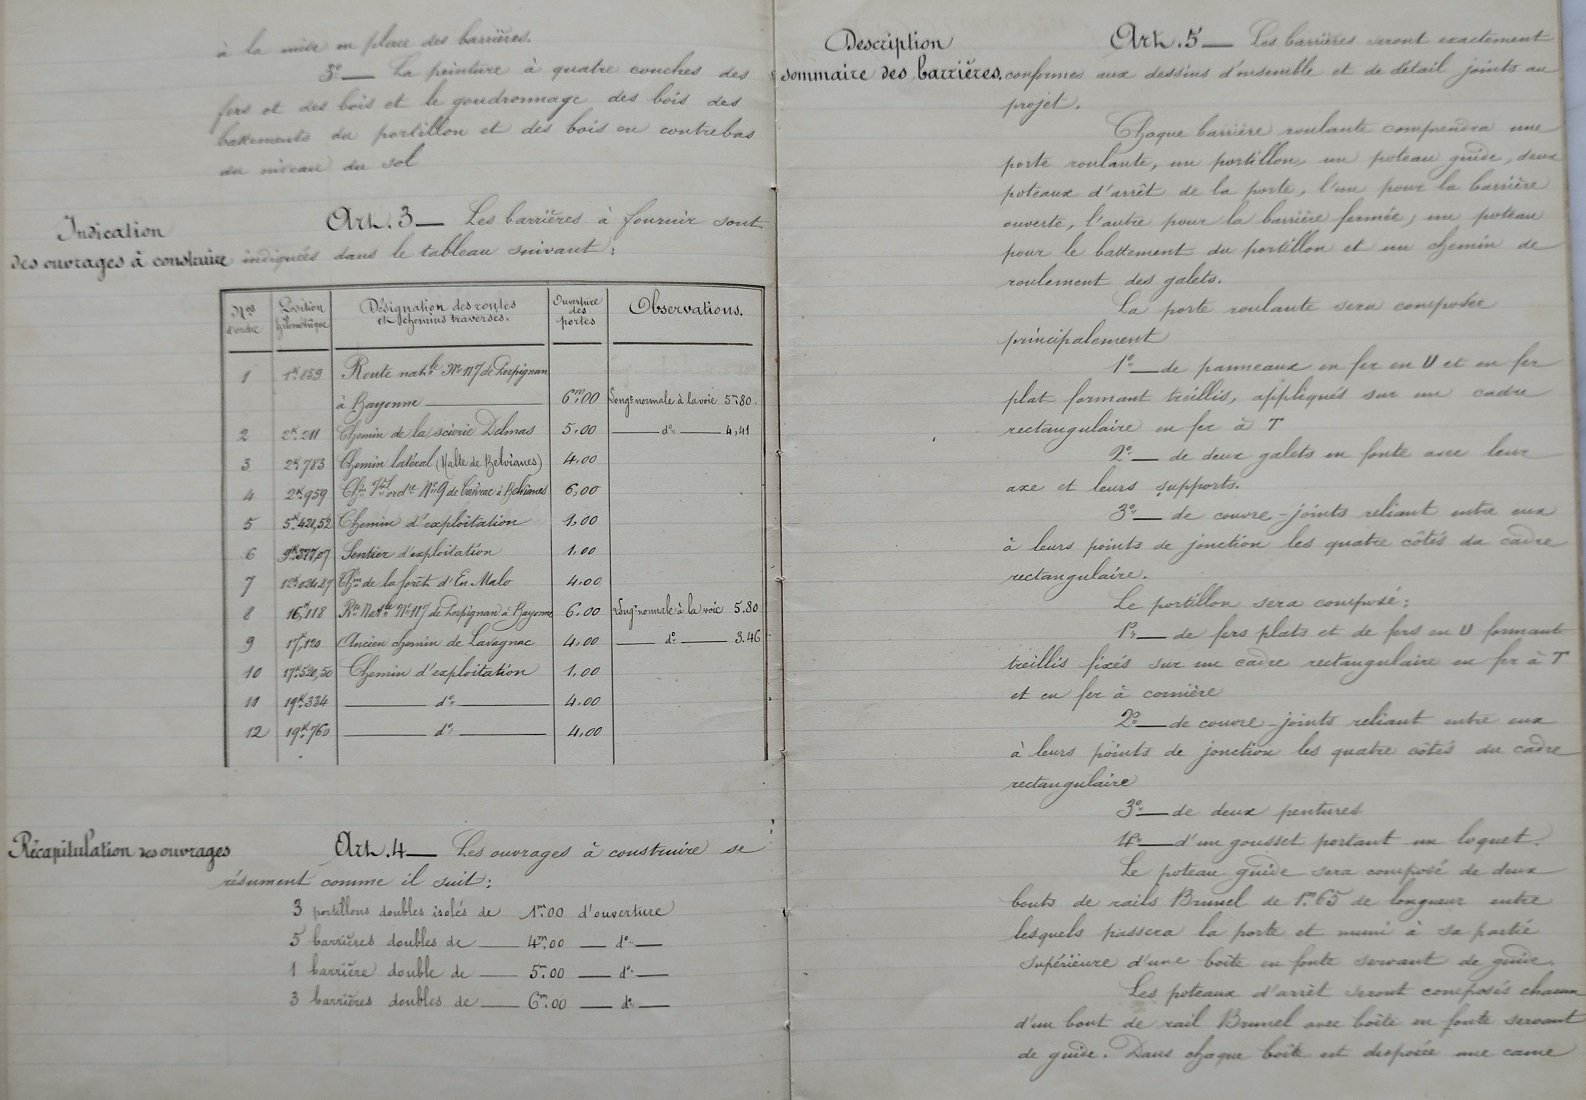 à la mise en place des barrières.
3º — La peinture à quatre couches des
fers et des bois et le goudronnage des bois des
battements du portillon et des bois en contrebas
du niveau du sol
Indication
des ouvrages à construire
Art. 3 — Les barrières à fournir sont
indiquées dans le tableau suivant :
Nos d'ordre | Position kilométrique | Désignation des routes et chemins traversés. | Ouverture des portes | Observations.
1 | 1k.859 | Route natle No 117 de Perpignan
à Bayonne — | 6m.00 | Longr normale à la voie 5m.80
2 | 2k.211 | Chemin de la scierie Delmas | 5.00 | — do — 4,41
3 | 2k.783 | Chemin latéral (Halte de Belvianes) | 4.00
4 | 2k.959 | de Cavirac à Belvianes | 6,00
5 | 5k.421,52 | Chemin d'exploitation | 1.00
6 | Sentier d'exploitation | 1.00
7 | Chin de la forêt d'En Malo | 4.00
8 | 16k,118 | Rte Natle No 117 de Perpignan à Bayonne | 6.00 | Longr normale à la voie 5.80
9 | 17k,120 | Ancien chemin de Lavagnac | 4.00 | — do — 3.46
10 | 17k.520,50 | Chemin d'exploitation | 1.00
11 | 19k.334 | — do — | 4.00
12 | 19k.760 | — do — | 4,00
Récapitulation des ouvrages
Art. 4 — Les ouvrages à construire se
résument comme il suit :
3 portillons doubles isolés de 1m.00 d'ouverture
5 barrières doubles de — 4m.00 — do —
1 barrière double de — 5m.00 — do —
3 barrières doubles de — 6m.00 — do —
Description
sommaire des barrières.
Art. 5 — Les barrières seront exactement
conformes aux dessins d'ensemble et de détail joints au
projet.
Chaque barrière roulante comprendra une
porte roulante, un portillon, un poteau guide, deux
poteaux d'arrêt de la porte, l'un pour la barrière
ouverte, l'autre pour la barrière fermée, un poteau
pour le battement du portillon et un chemin de
roulement des galets.
La porte roulante sera composée
principalement
1º — de panneaux en fer en U et en fer
plat formant treillis, appliqués sur un cadre
rectangulaire en fer à T
2º — de deux galets en fonte avec leur
axe et leurs supports.
3º — de couvre-joints reliant entre eux
à leurs points de jonction les quatre côtés du cadre
rectangulaire.
Le portillon sera composé :
1º — de fers plats et de fers en U formant
treillis fixés sur un cadre rectangulaire en fer à T
et en fer à cornière
2º — de couvre-joints reliant entre eux
à leurs points de jonction les quatre côtés du cadre
rectangulaire
3º — de deux pentures
4º — d'un gousset portant un loquet.
Le poteau guide sera composé de deux
bouts de rails Brunel de 1m.65 de longueur entre
lesquels passera la porte et muni à sa partie
supérieure d'une boîte en fonte servant de guide.
Les poteaux d'arrêt seront composés chacun
d'un bout de rail Brunel avec boîte en fonte servant
de guide. Dans chaque boîte est disposée une came